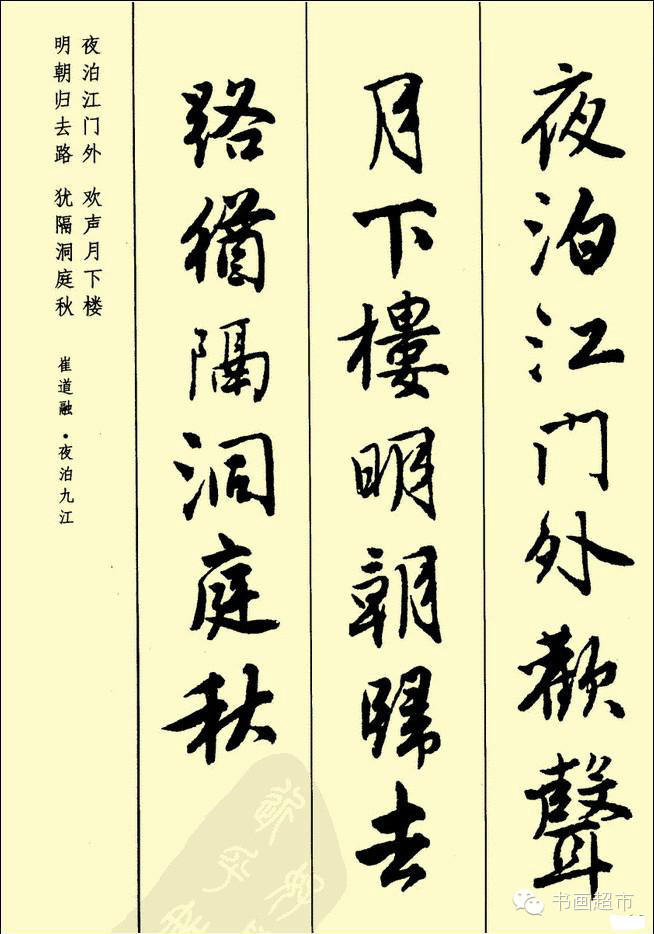 夜泊江门外歡聲
月下樓明朝歸去
路猶隔洞庭秋
夜泊江门外 欢声月下楼
明朝归去路 犹隔洞庭秋
崔道融·夜泊九江
书画超市